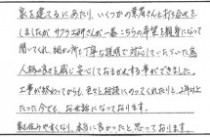 家を建てるにあたり、いくつかの業者さんと打ち合せを
しましたが、サクラ工研さんが一番こちらの希望を親身になって
聞いてくれ、細かい所まで丁寧な説明で対応していただいた為
人柄の良さも感じ安心しておまかせする事ができました。
工事が終わってからも、色々と相談にのってくれたりと、2年以上
たった今でも、お世話になっております。
家も住みやすくなり、本当に良かったと思っております。